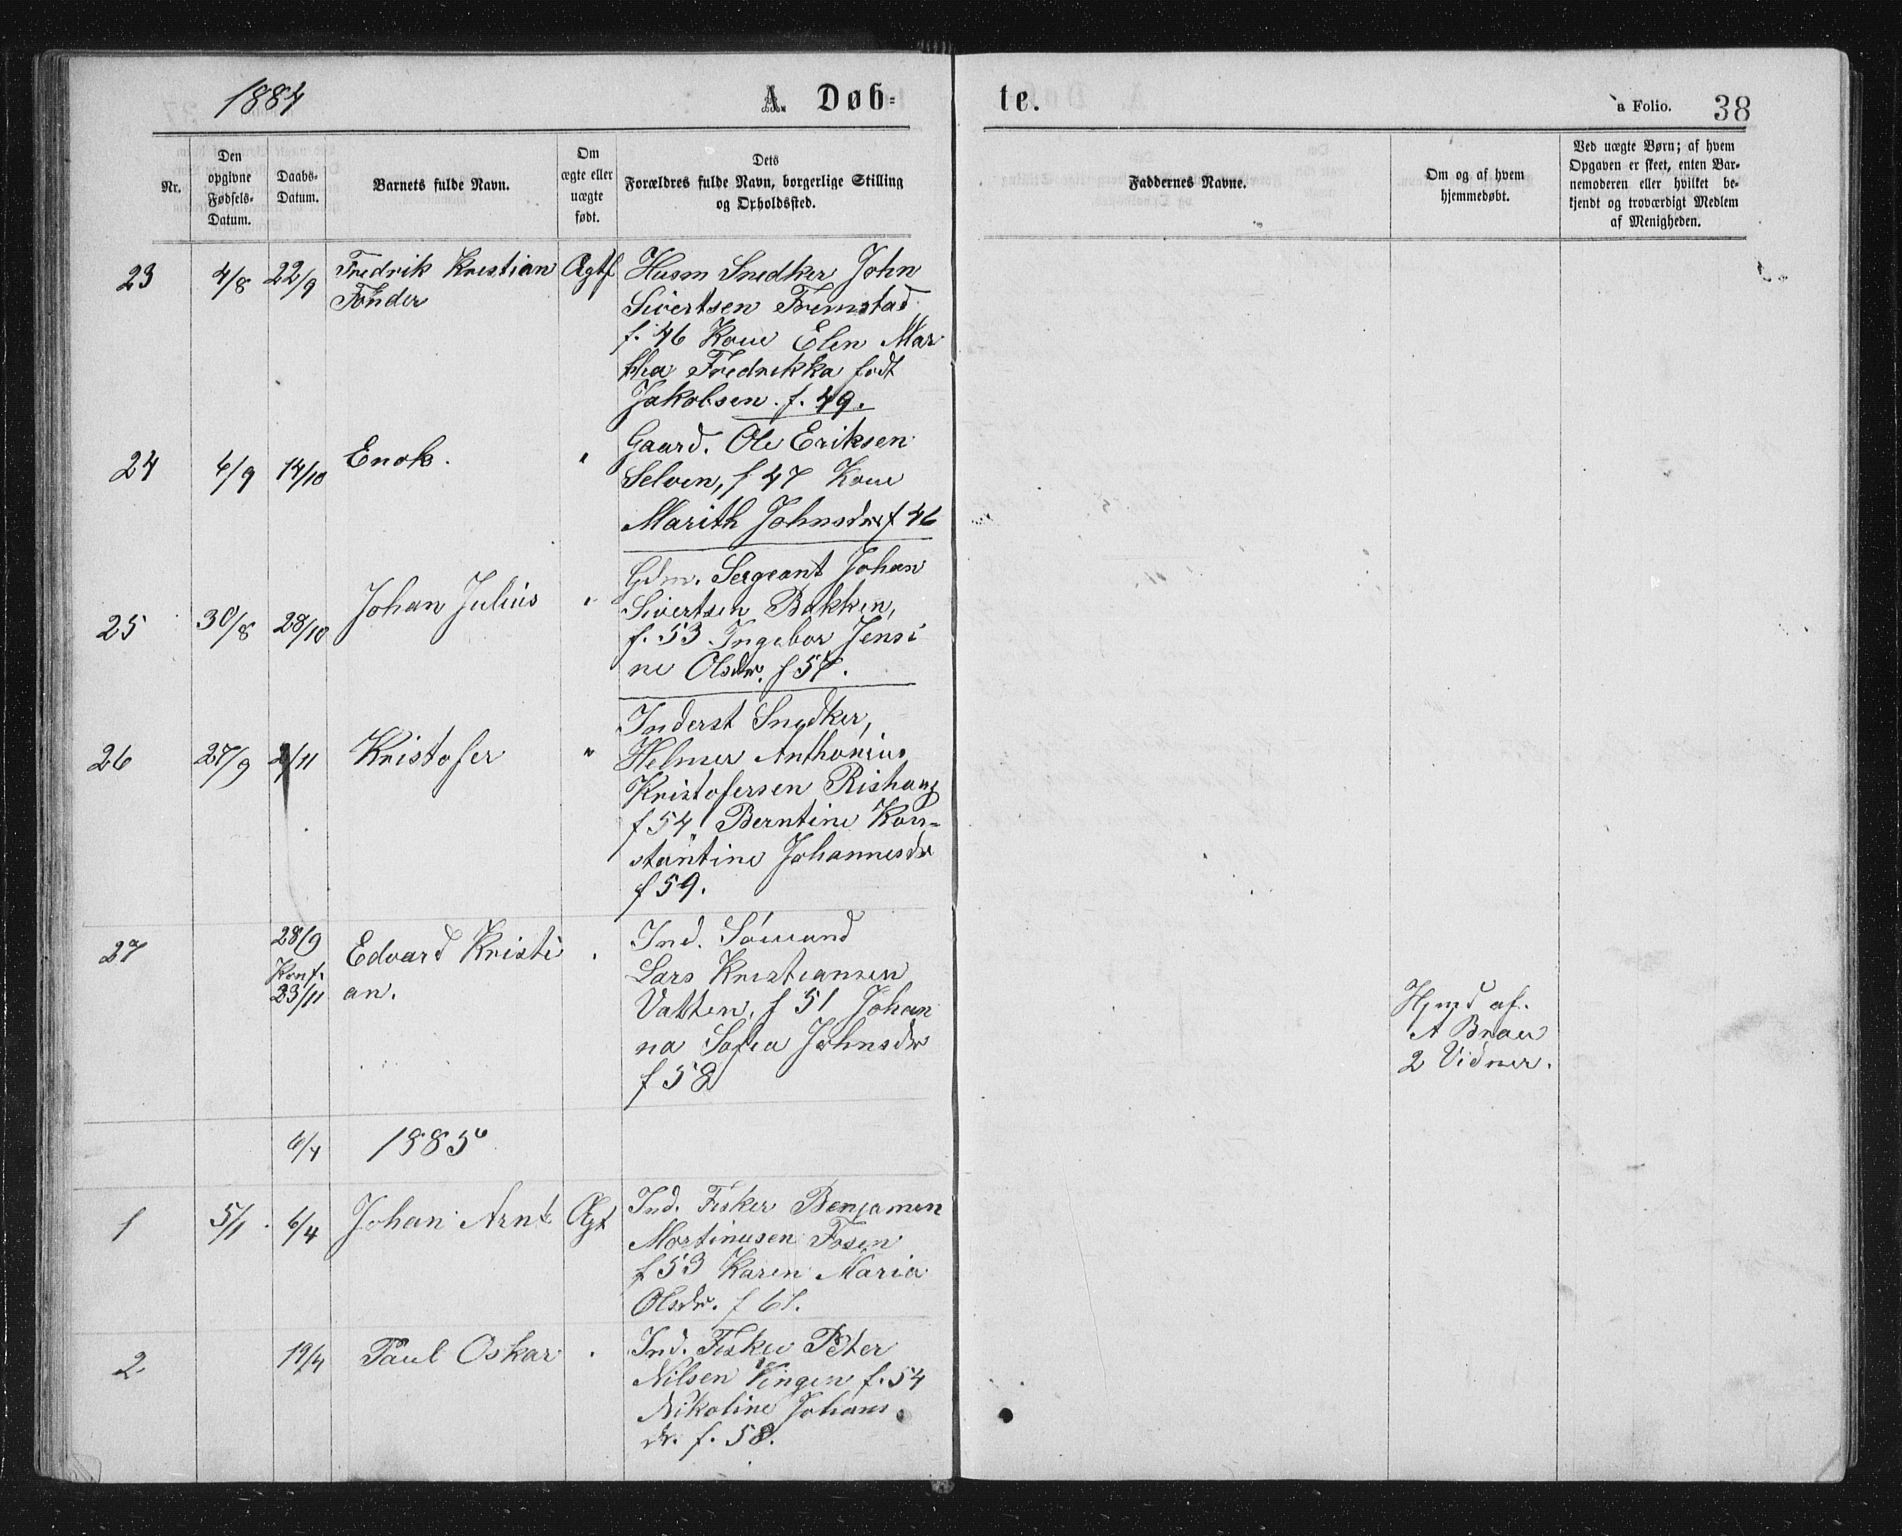 1884 A. Døb= te. a Folio. 38
Nr.
Den opgivne Fødsels-Datum.
Daabs-Datum.
Barnets fulde Navn.
Om ægte eller uægte født.
Dets Forældres fulde Navn, borgerlige Stilling og Opholdssted.
Faddernes Navne.
Om og af hvem hjemmedøbt.
Ved uægte Børn; af hvem Opgaven er skeet, enten Barnemoderen eller hvilket bekjendt og troværdigt Medlem af Menigheden.
23 4/8 22/9 Fredrik Kristian Ægtf Husm Snedker John
Fønder Sivertsen Fremstad
f. 46 Kone Elen Mar
tha Fredrikka født
Jakobsen. f. 49.
24 6/9 14/10 Enok. " Gaard. Ole Eriksen
Selven, f 47 Kone
Marith Johnsdr f 46
25 30/8 28/10 Johan Julius " Gdm. Sergeant Johan
Sivertsen Bakken,
f. 53 Ingebor Jensi
ne Olsdr. f 57.
26 27/9 2/11 Kristofer " Inderst Snedker,
Helmer Anthonius
Kristofersen Rishaug
f 54 Berntine Kon-
stantine Johannesdr
f 59.
27 28/9 Edvard Kristi " Ind. Sømand
Konf. 23/11 an. Lars Kristiansen
Vatten, f 51 Johan
na Sofia Johnsdr
f 58
Hjmd af.
A Braa
2 Vidner.
6/4 1885
1 5/1 6/4 Johan Arnt Ægt Ind. Fisker Benjamen
Martinusen Fosen
f 53 Karen Maria
Olsdr. f 61.
2 19/4 Paul Oskar " Ind. Fisker Peter
Nilsen Vingen f. 54
Nikoline Johans
dr. f. 58.